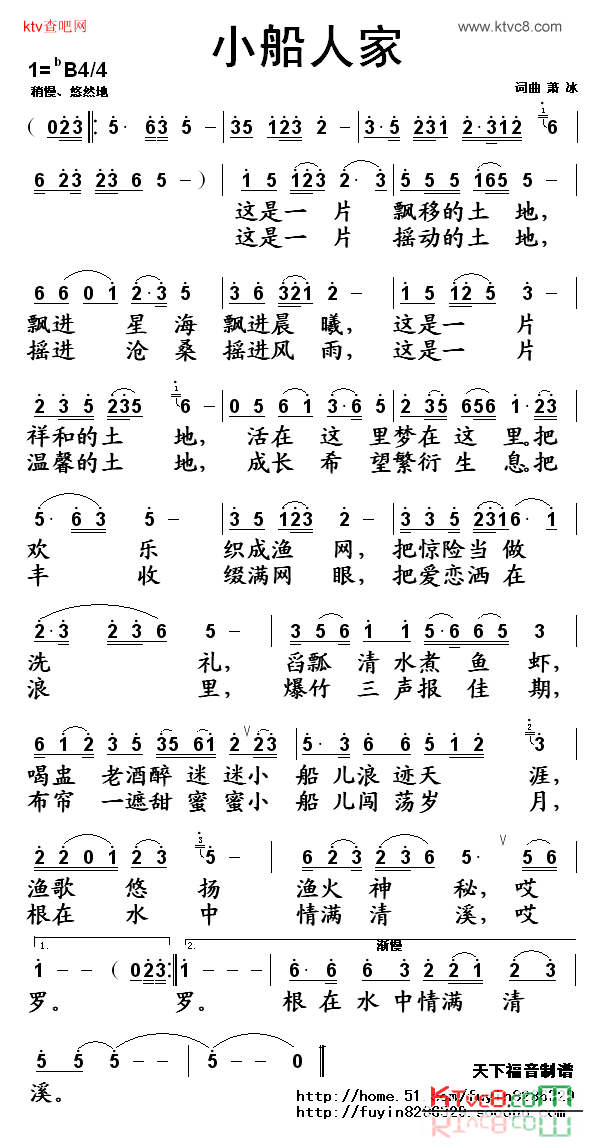 ktv查吧网
www.ktvc8.com
小船人家
1=ᵇB4/4
稍慢、悠然地
词曲 萧 冰
( 0 2 3 5· 6 3 5 – 3 5 1 2 3 2 – 3· 5 2 3 1 2· 3 1 2 1 6
6 2 3 2 3 6 5 – ) 1 5 1 2 3 2· 3 5 5 5 1 6 5 5 –
这是一 片 飘移的土 地,
这是一 片 摇动的土 地,
6 6 0 1 2·3 5 3 6 3 2 1 2 – 1 5 1 2 5 3 –
飘进 星 海 飘进晨 曦, 这是一 片
摇进 沧 桑 摇进风 雨, 这是一 片
2 3 5 2 3 5 1 6 – 0 5 6 1 3·6 5 2 3 5 6 5 6 1· 2 3
祥和的土 地, 活在 这 里梦在 这 里。把
温馨的土 地, 成长 希 望繁衍 生 息。把
5· 6 3 5 – 3 5 1 2 3 2 – 3 3 5 2 3 1 6· 1
欢 乐 织成渔 网, 把惊险当 做
丰 收 缀满网 眼, 把爱恋洒 在
2·3 2 3 6 5 – 3 5 6 1 1 5·6 6 5 3
洗 礼, 舀瓢 清 水煮 鱼 虾,
浪 里, 爆竹 三 声报 佳 期,
6 1 2 3 5 3 5 6 1 2 ∨ 2 3 5· 3 6 6 5 1 2 2 3
喝盅 老酒醉 迷 迷小 船 儿浪 迹天 涯,
布帘 一遮甜 蜜 蜜小 船 儿闯 荡岁 月,
2 2 0 1 2 3 3 5· 1 2 3 2 3 6 5· ∨ 5 6
渔歌 悠 扬 渔火 神 秘, 哎
根在 水 中 情满 清 溪, 哎
1. 2. 渐慢
1 – – ( 0 2 3 1 – – 6· 6 6 3 2 2 1 2 3
罗。 罗。 根 在 水 中情满 清
5 5 5 – – 5 – – 0
溪。
天下福音制谱
http://home.51.com/fuyin8206329
KTvc8.com